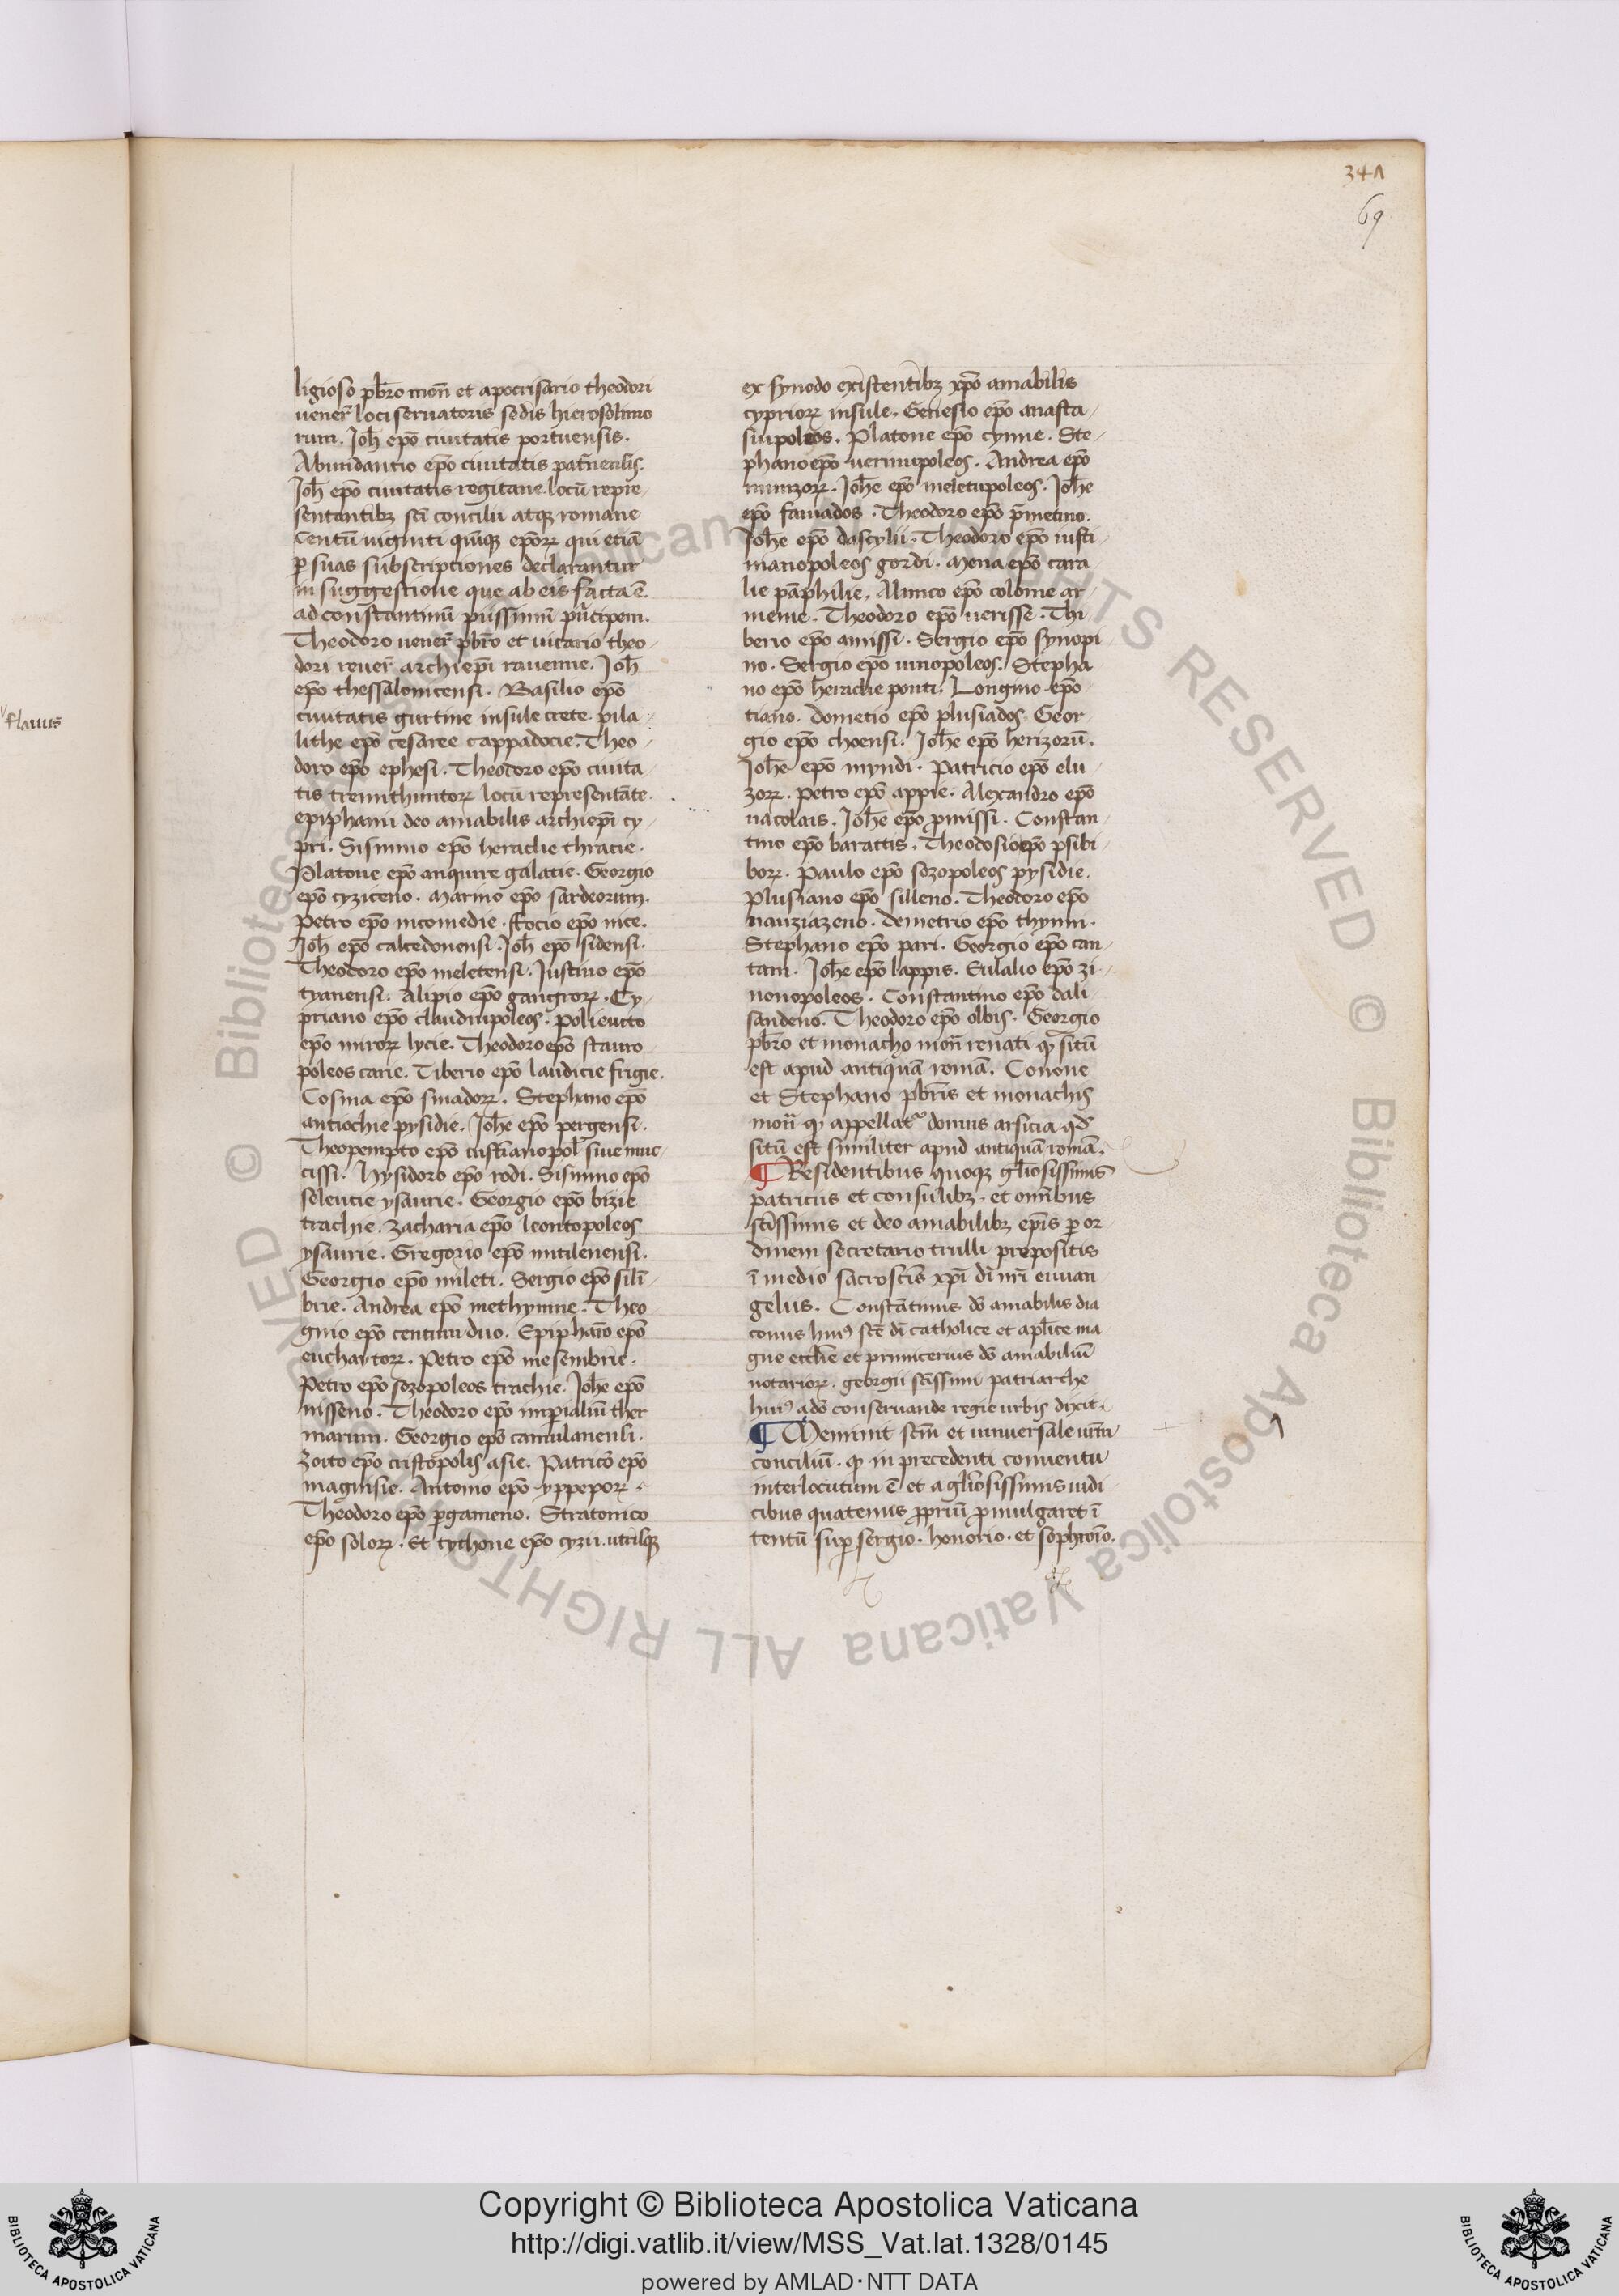 341
69
flauus
ligioso pb̄ro mon̄ et apocrisario theodori
uener̄ loci seruatoris sedis hierosolimo
rum. Joh̄ ep̄o ciuitatis portuensis.
Abundantio ep̄o ciuitatis pat̄nensis.
Joh̄ ep̄o ciuitatis regitane locū repre
sentantibꝫ sc̄i concilii atqꝫ romane
centū uiginti quiqꝫ ep̄oꝝ qui etiā
ꝑ suas subscriptiones declarantur
in suggestione que ab eis facta ē.
ad constantinū piissimū pͥncipem.
Theodoro uener̄ pb̄ro et uicario theo
dori reuer̄ archiep̄i rauenne. Joh̄
ep̄o thessalonicensi. Basilio ep̄o
ciuitatis gurtine insule crete. pila
lithe ep̄o cesaree cappadocie. Theo
doro ep̄o ephesi. Theodoro ep̄o ciuita
tis trennthuntoꝝ locū representāte.
epiphanii deo amabilis archiep̄i cy
pri. Sisinnio ep̄o heraclie thracie.
Platone ep̄o anquire galatie. Georgio
ep̄o cyziceno. Marino ep̄o sardeorum.
Petro ep̄o nicomedie. ffocio ep̄o nice.
Joh̄ ep̄o calcedonensi. Joh̄ ep̄o sidensi.
Theodoro ep̄o meletensi. Justino ep̄o
tyanensi. Alipio ep̄o gangroꝝ. Cy
priano ep̄o claudiupoleos. Polieucto
ep̄o miroꝝ lycie. Theodoro ep̄o stauro
poleos carie. Tiberio ep̄o laudicie frigie.
Cosma ep̄o sinadoꝝ. Stephano ep̄o
antiochie pysidie. Joh̄e ep̄o pergensi.
Theopempto ep̄o iustīanopol̄ siue muc
cissi. Hysidoro ep̄o rodi. Sisinnio ep̄o
seleucie ysaurie. Georgio ep̄o bizie
trachie. Zacharia ep̄o leontopoleos
ysaurie. Gregorio ep̄o mitilenensi.
Georgio ep̄o mileti. Sergio ep̄o silī
brie. Andrea ep̄o methymne. Theo
gnio ep̄o centum duo. Epiphāio ep̄o
euchaytoꝝ. Petro ep̄o mesembrie.
Petro ep̄o sozopoleos trachie. Joh̄e ep̄o
nisseno. Theodoro ep̄o imꝑialiū ther
marum. Georgio ep̄o camulanensi.
Zoito ep̄o cristopolis asie. Patricō ep̄o
magnisie. Antonio ep̄o yppepoꝝ.
Theodoro ep̄o ꝑgameno. Stratonico
ep̄o soloꝝ. Et tychone ep̄o cyzii. utrisqꝫ
ex synodo existentibꝫ xp̄o amabilis
cyprioꝝ insule. Genesio ep̄o anasta
siupoleos. Platone ep̄o cynne. Ste
phano ep̄o uerinupoleos. Andrea ep̄o
mnizoꝝ. Joh̄e ep̄o meletupoleos. Joh̄e
ep̄o famados. Theodoro ep̄o p̄metino.
Joh̄e ep̄o dascylii. Theodoro ep̄o iusti
nianopoleos gordi. Mena ep̄o cara
lie pāphilie. Alimco ep̄o colonie ar
menie. Theodoro ep̄o uerisse. Thi
berio ep̄o amissi. Sergio ep̄o synopi
no. Sergio ep̄o iunopoleos. Stepha
no ep̄o heraclie ponti. Longino ep̄o
tiano. Dometio ep̄o plusiados. Geor
gio ep̄o choensi. Joh̄e ep̄o herizorū.
Joh̄e ep̄o myndi. Patricio ep̄o elu
zoꝝ. Petro ep̄o appie. Alexandro ep̄o
nacolais. Joh̄e ep̄o ꝓnissi. Constan
tino ep̄o barattis. Theodosio ep̄o psibi
boꝝ. Paulo ep̄o sozopoleos pysidie.
Plusiano ep̄o silleno. Theodoro ep̄o
nauziazeno. Demetrio ep̄o thynni.
Stephano ep̄o pari. Georgio ep̄o can
tani. Joh̄e ep̄o lappis. Eulalio ep̄o zi
nonopoleos. Constantino ep̄o dali
sandeno. Theodoro ep̄o olbis. Georgio
pb̄ro et monacho mon̄ renati qͩ sitū
est apud antiquā romā. Conone
et Stephano pb̄ris et monachis
mon̄ qͩ appellatͬ domus arsicia. qd̄
sitū est similiter apud antiquā romā.
¶ Residentibus quoqꝫ gl̄iosissimis
patriciis et consulibꝫ. et om̄ibus
sc̄issimis et deo amabilibꝫ ep̄is ꝑ or
dinem secretario trulli prepositis
ī medio sacrosc̄is xp̄i dī nr̄i euuan
geliis. Constātinus dō amabilis dia
conus huiꝰ sc̄e dī catholice et apl̄ice ma
gne eccl̄ie et primicerius dō amabiliū
notarioꝝ. georgii sc̄issimi patriarche
huiꝰ a dō conseruande regie urbis dixit.
¶ Meminit sc̄m et uniuersale ur̄m
conciliū. qͩ in precedenti conuentu
interlocutum ē et a gl̄iosissimis iudi
cibus quatenus ꝓpriū ꝓmulgaret ī
tentū suꝑ sergio. honorio. et sophroīo.
© Biblioteca Apostolica Vaticana ALL RIGHTS RESERVED
Copyright © Biblioteca Apostolica Vaticana
http://digi.vatlib.it/view/MSS_Vat.lat.1328/0145
powered by AMLAD·NTT DATA
BIBLIOTECA APOSTOLICA VATICANA
BIBLIOTECA APOSTOLICA VATICANA